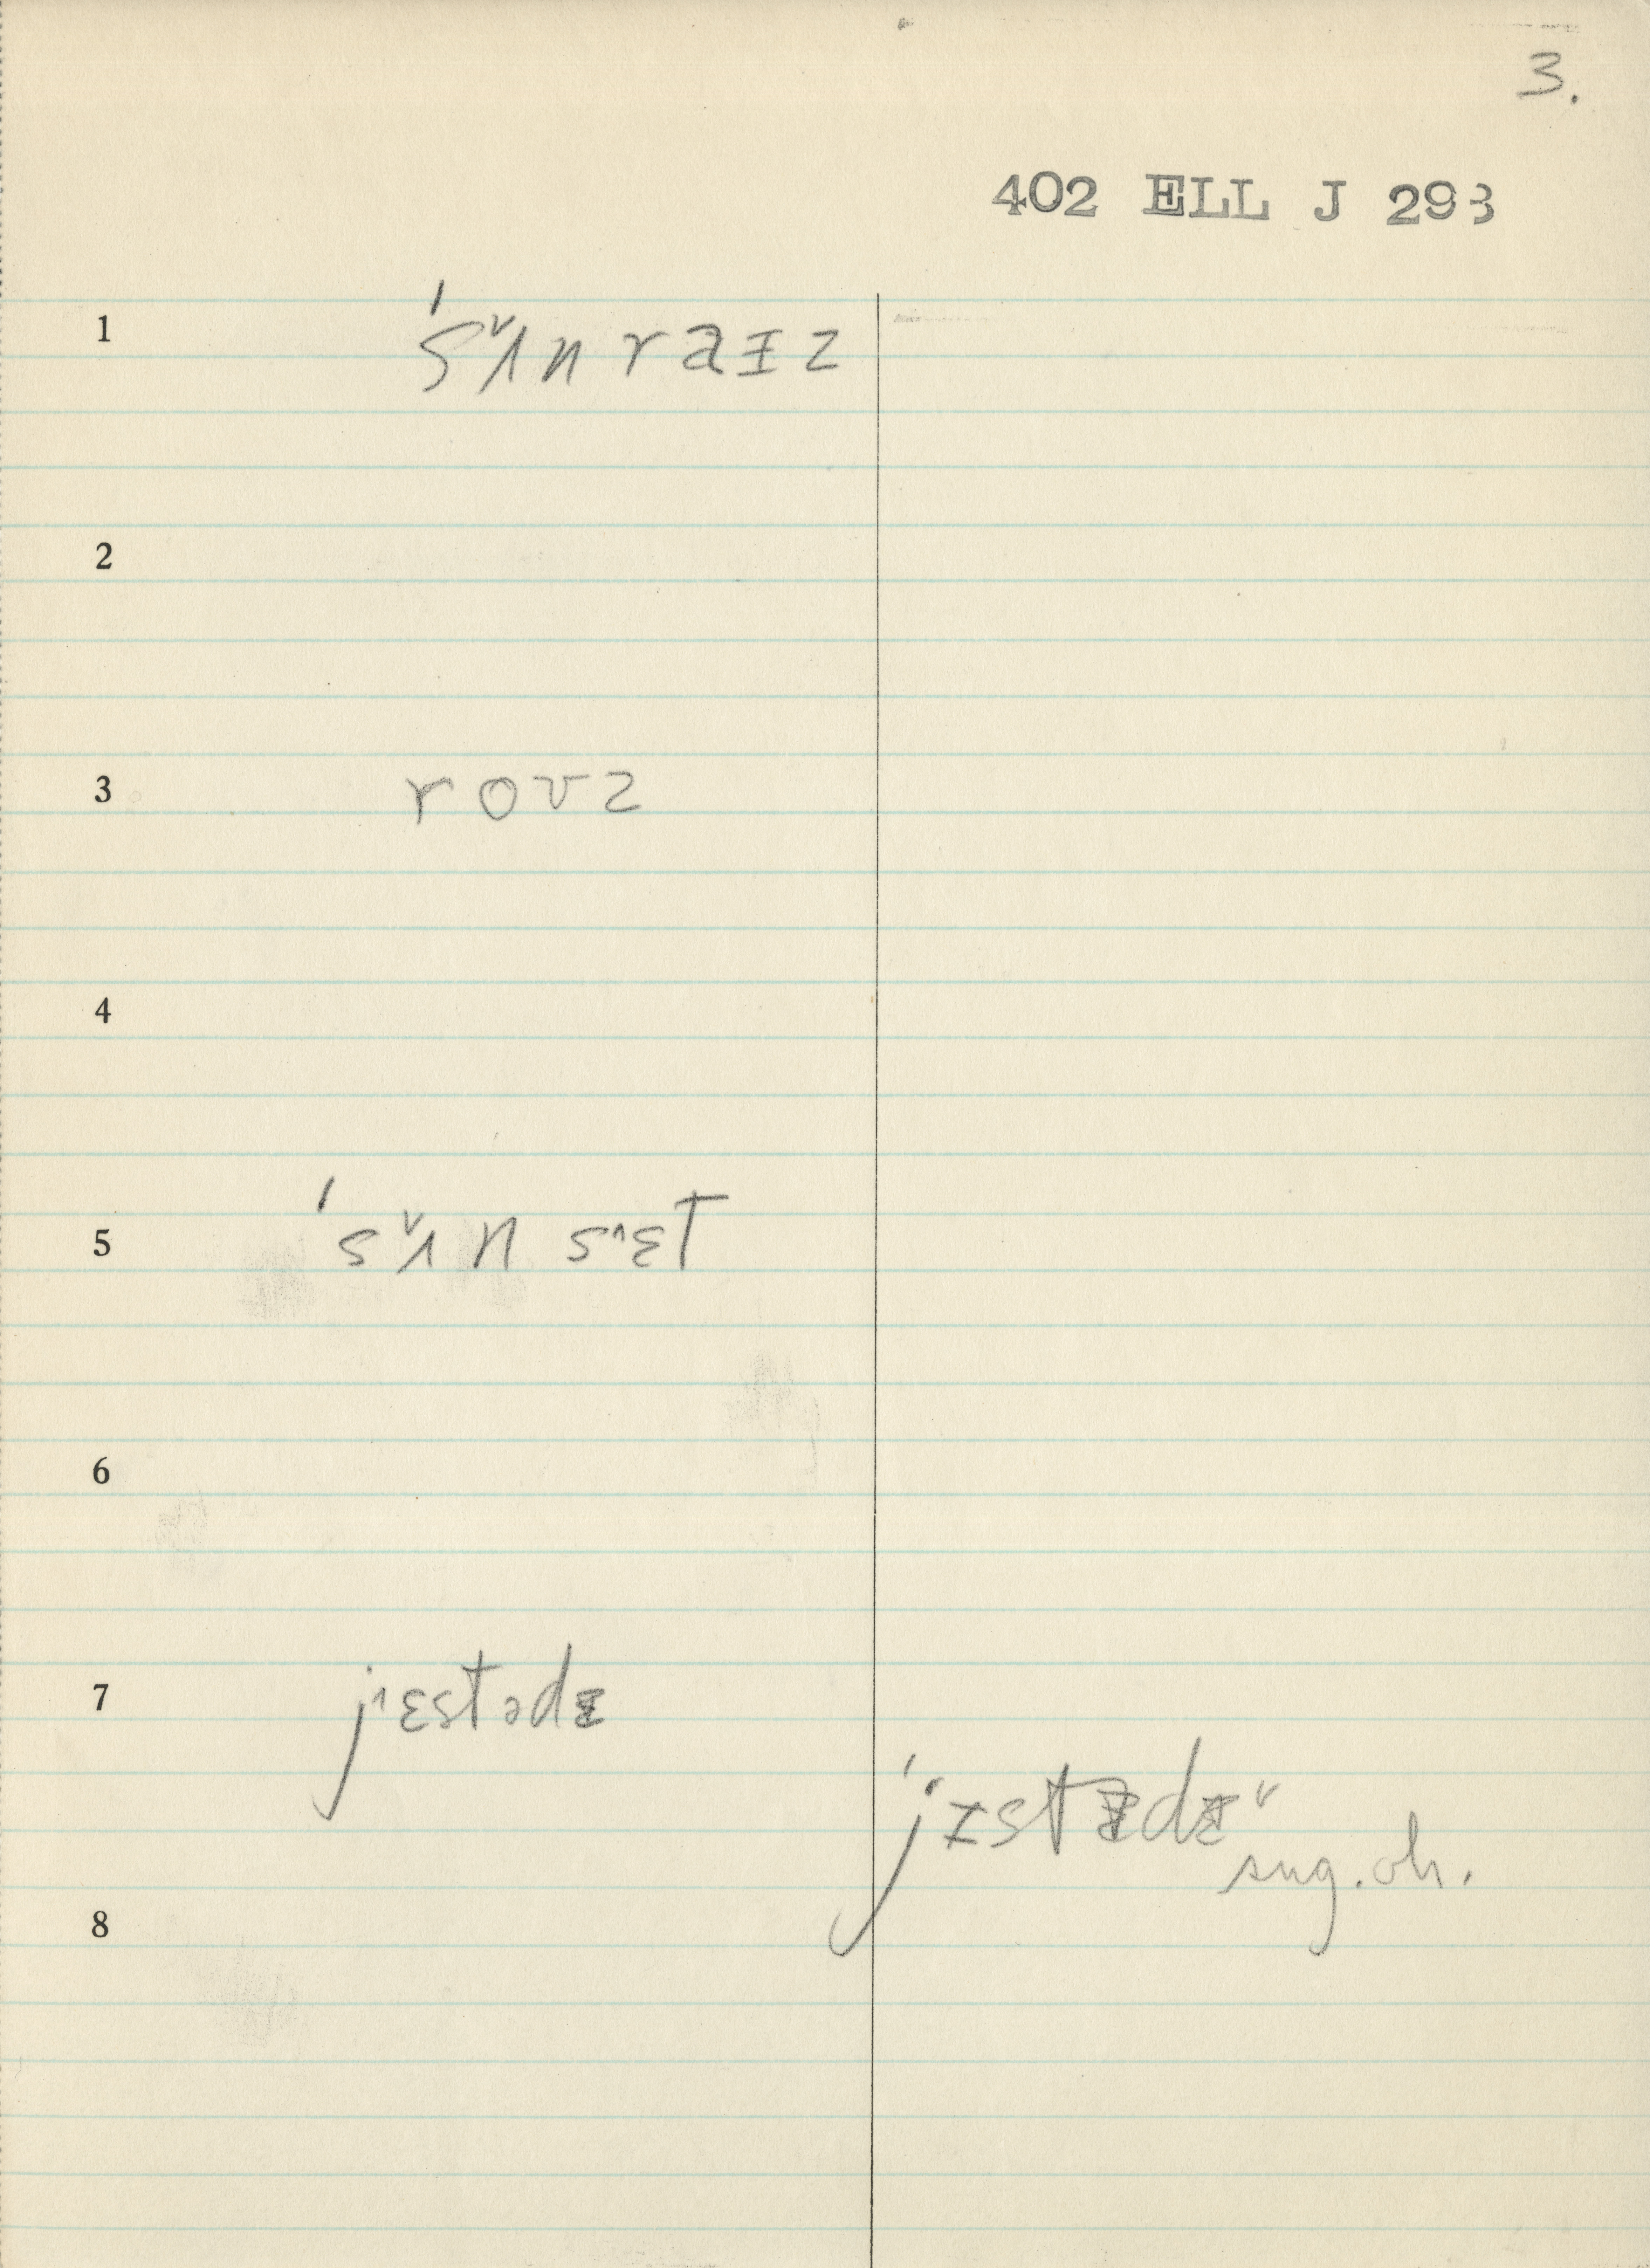 3.
402 ELL J 293
1 ˈsʌ˅nraɪz
2
3 roʊz
4
5 ˈsʌ˅n sɛ˄t
6
7 jɛ˄stədɪ
ˈjɪstɪdɪ˅
sug. oh.
8